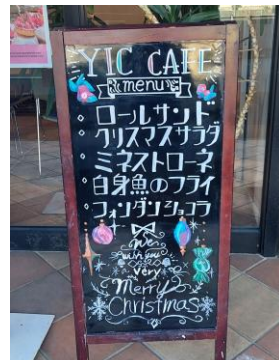 YIC CAFE
menu
・ロールサンド
・クリスマスサラダ
・ミネストローネ
・白身魚のフライ
・フォンダンショコラ
We
Very
Merry
Christmas